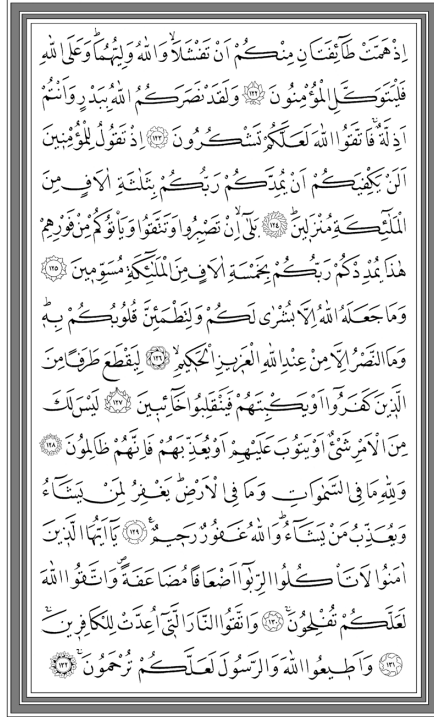 اِذْ هَمَّتْ طَٓائِفَتَانِ مِنْكُمْ اَنْ تَفْشَلَاۙ وَاللّٰهُ وَلِيُّهُمَاۜ وَعَلَى اللّٰهِ
فَلْيَتَوَكَّلِ الْمُؤْمِنُونَ ﴿١٢٢﴾ وَلَقَدْ نَصَرَكُمُ اللّٰهُ بِبَدْرٍ وَاَنْتُمْ
اَذِلَّةٌۚ فَاتَّقُوا اللّٰهَ لَعَلَّكُمْ تَشْكُرُونَ ﴿١٢٣﴾ اِذْ تَقُولُ لِلْمُؤْمِنِينَ
اَلَنْ يَكْفِيَكُمْ اَنْ يُمِدَّكُمْ رَبُّكُمْ بِثَلٰثَةِ اٰلَافٍ مِنَ
الْمَلٰٓئِكَةِ مُنْزَلِينَۜ ﴿١٢٤﴾ بَلٰٓىۙ اِنْ تَصْبِرُوا وَتَتَّقُوا وَيَأْتُوكُمْ مِنْ فَوْرِهِمْ
هٰذَا يُمْدِدْكُمْ رَبُّكُمْ بِخَمْسَةِ اٰلَافٍ مِنَ الْمَلٰٓئِكَةِ مُسَوِّمِينَ ﴿١٢٥﴾
وَمَا جَعَلَهُ اللّٰهُ اِلَّا بُشْرٰى لَكُمْ وَلِتَطْمَئِنَّ قُلُوبُكُمْ بِهۜ
وَمَا النَّصْرُ اِلَّا مِنْ عِنْدِ اللّٰهِ الْعَزِيزِ الْحَكِيمِۙ ﴿١٢٦﴾ لِيَقْطَعَ طَرَفًا مِنَ
الَّذِينَ كَفَرُٓوا اَوْ يَكْبِتَهُمْ فَيَنْقَلِبُوا خَٓائِبِينَ ﴿١٢٧﴾ لَيْسَ لَكَ
مِنَ الْاَمْرِ شَيْءٌ اَوْ يَتُوبَ عَلَيْهِمْ اَوْ يُعَذِّبَهُمْ فَاِنَّهُمْ ظَالِمُونَ ﴿١٢٨﴾
وَلِلّٰهِ مَا فِي السَّمٰوَاتِ وَمَا فِي الْاَرْضِۜ يَغْفِرُ لِمَنْ يَشَٓاءُ
وَيُعَذِّبُ مَنْ يَشَٓاءُۜ وَاللّٰهُ غَفُورٌ رَحِيمٌ۟ ﴿١٢٩﴾ يَٓا اَيُّهَا الَّذِينَ
اٰمَنُوا لَا تَأْكُلُوا الرِّبٰٓوا اَضْعَافًا مُضَاعَفَةًۖ وَاتَّقُوا اللّٰهَ
لَعَلَّكُمْ تُفْلِحُونَۚ ﴿١٣٠﴾ وَاتَّقُوا النَّارَ الَّتٓي اُعِدَّتْ لِلْكَافِرِينَۚ
﴿١٣١﴾ وَاَطِيعُوا اللّٰهَ وَالرَّسُولَ لَعَلَّكُمْ تُرْحَمُونَۚ ﴿١٣٢﴾